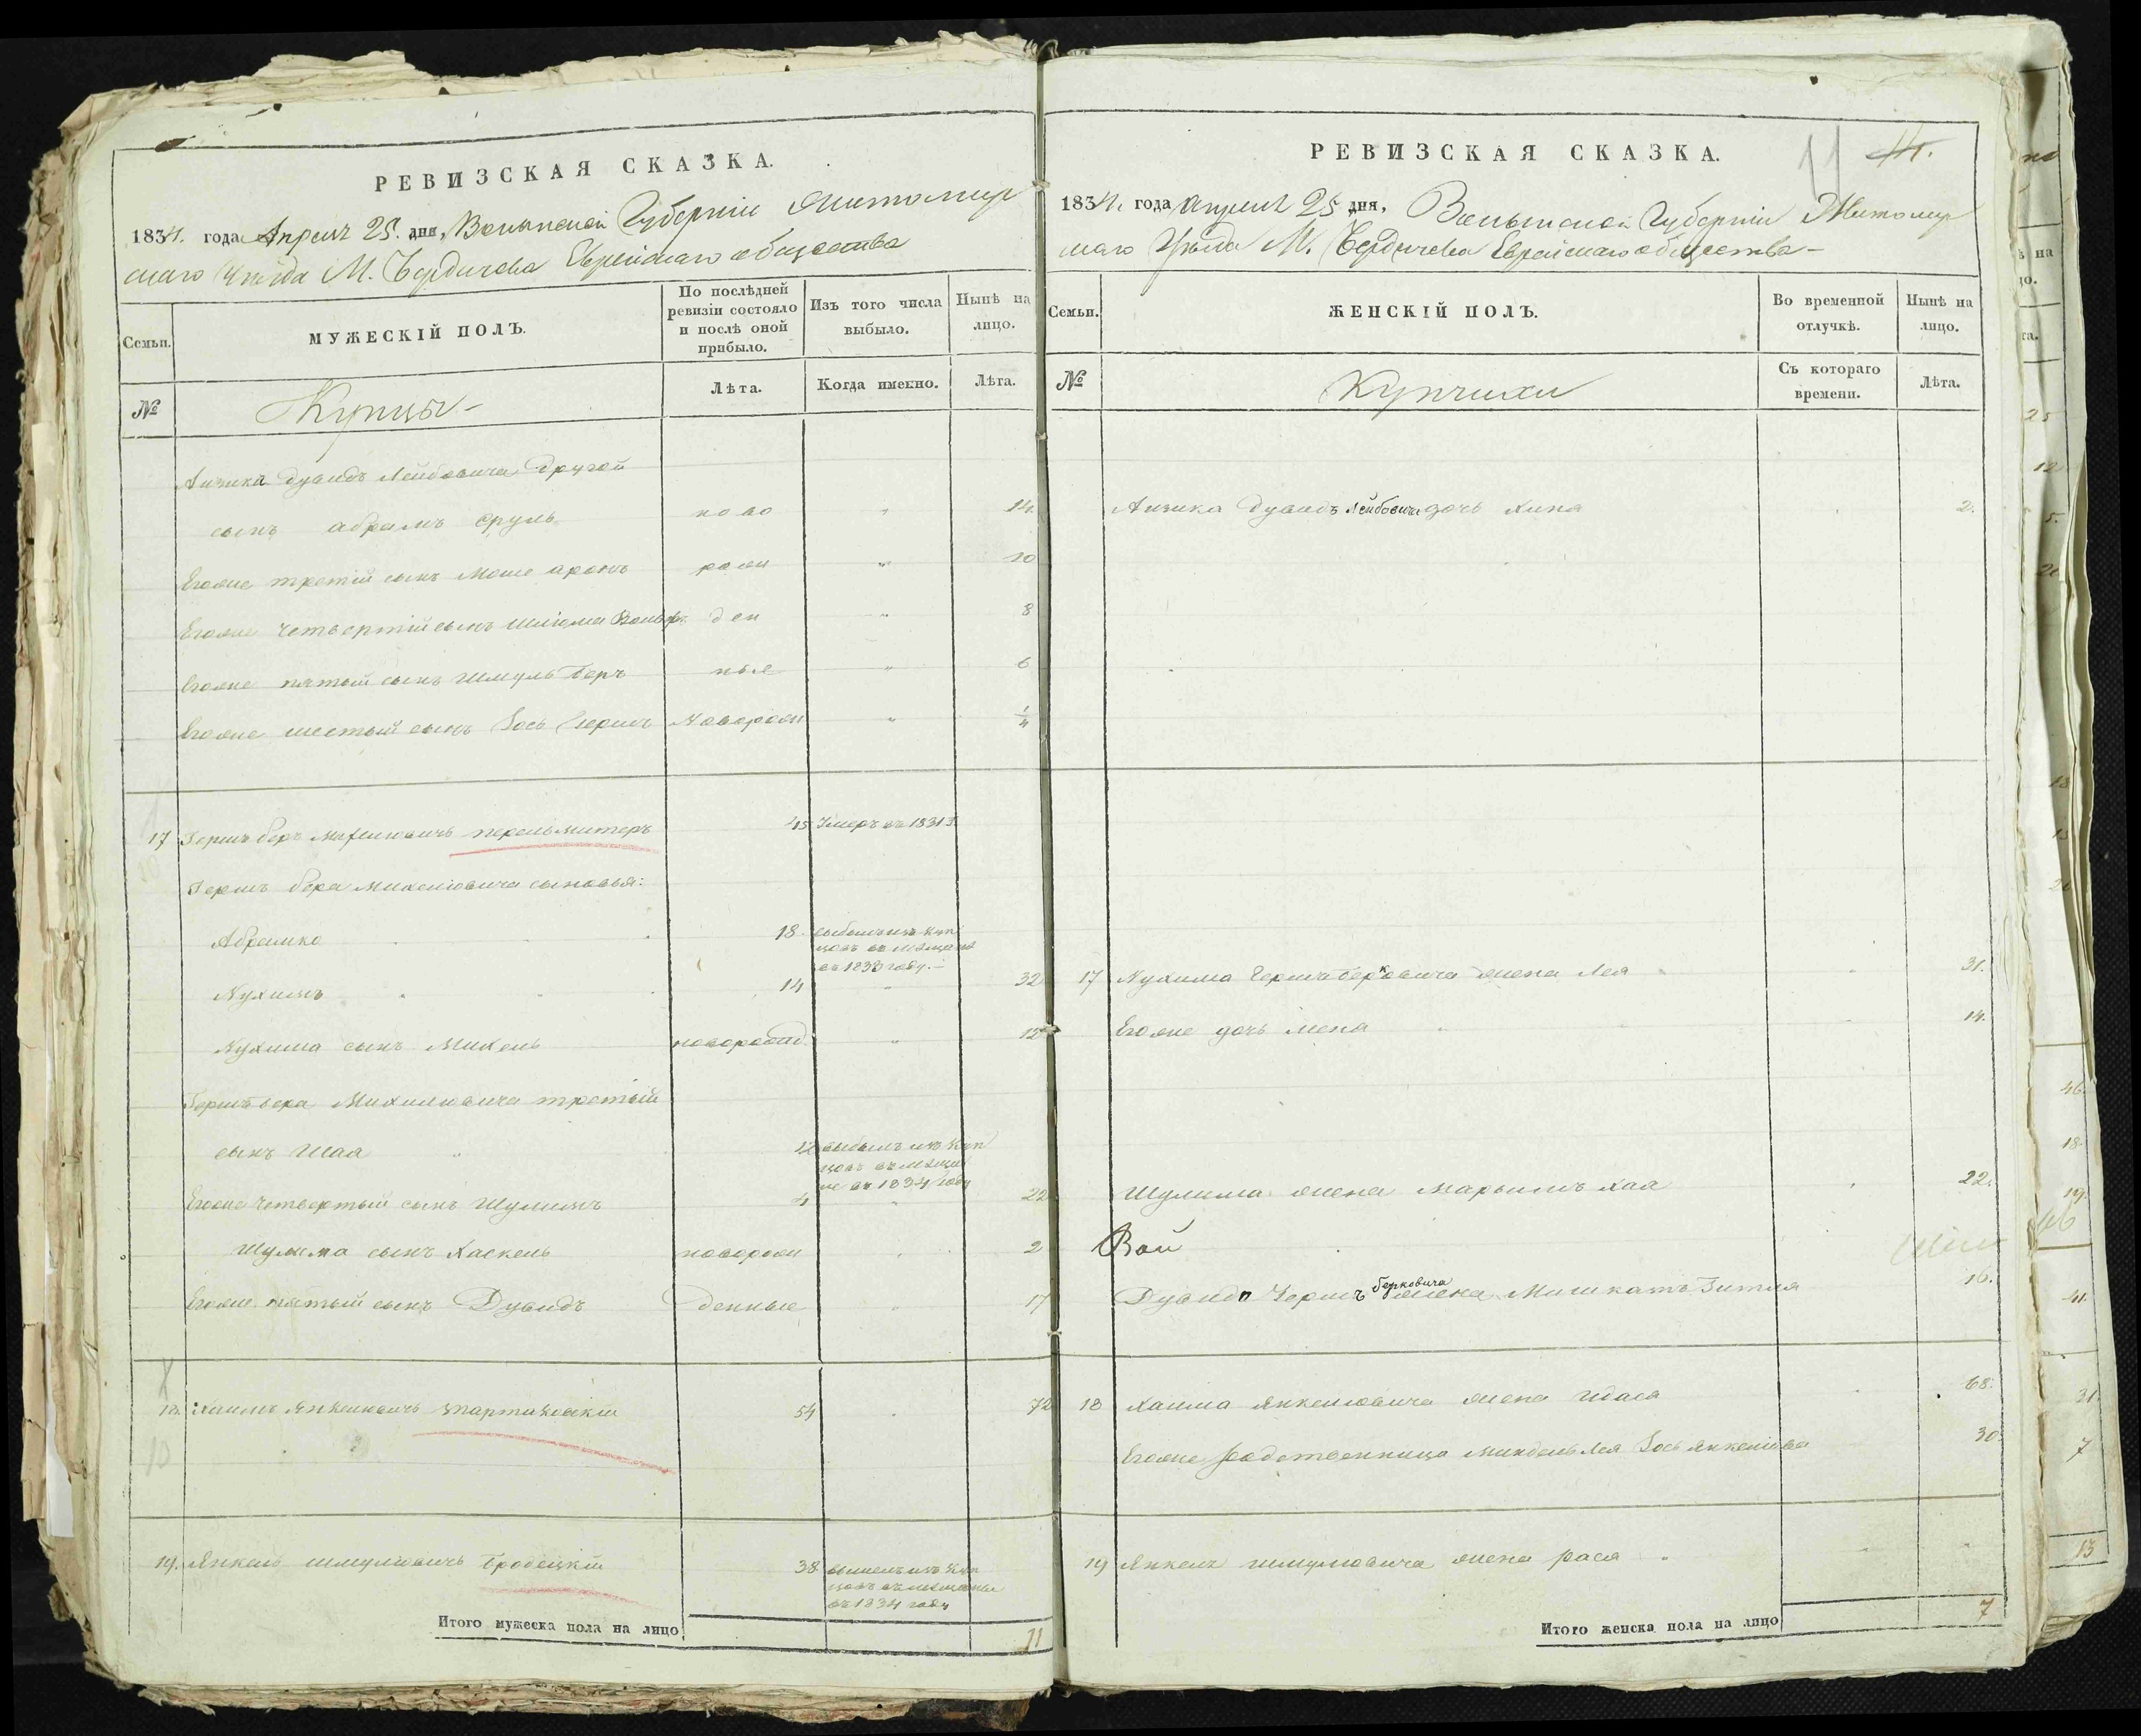 РЕВИЗСКАЯ СКАЗКА.
1834. года Апреля 25. дня, Волынской Губерніи Житомир
скаго Уѣзда М. Бердичева Еврейскаго общества
Семьи.
МУЖЕСКІЙ ПОЛЪ.
По послѣдней ревизіи состояло и послѣ оной прибыло.
Изъ того числа выбыло.
Нынѣ на лицо.
№
Купцы
Лѣта.
Когда именно.
Лѣта.
Аизика Дувидъ Лейбовича другой
сынъ абрамъ сруль ново " 14.
Егоже третій сынъ Моше аронъ рож " 10
Егоже четвертій сынъ Шліома Вольф. ден " 8
Егоже пятый сынъ Шмуль Беръ ные " 6
Егоже шестый сынъ Іось Гершъ Новорож " 1/4
17 Гершъ беръ Михелювичъ перельмитеръ 45 Умеръ въ 1831 г.
Гершъ бера Михелювича сыновья:
Абрамко 18. выбылъ изъ куп
цовъ въ мѣщане
въ 1833 году.
Нухимъ 14 " 32
Нухима сынъ Михель новорожд. " 12
Гершъ бера Михилювича третьій
сынъ Шая выбылъ изъ куп
цовъ въ мѣщан
не въ 1834 году
Егоже четвертый сынъ Шулимъ 4 " 22
Шулима сынъ Хаскель новорож 2
Егоже пятый сынъ Дувидъ денные 17
18. Хаимъ Янкелювичъ 54 72
10
19. Янкель Шмулювичъ Бродецкій 38. вышелъ изъ куп
цовъ въ мѣщане
въ 1834 году
Итого мужеска пола на лицо 11
РЕВИЗСКАЯ СКАЗКА.
11
1834. года Апреля 25 дня, Волынской Губерніи Житомир
скаго Уѣзда М. Бердичева Еврейскаго общества
Семьи.
ЖЕНСКІЙ ПОЛЪ.
Во временной отлучкѣ.
Нынѣ на лицо.
№
Купчихи
Съ котораго времени.
Лѣта.
Аизика Дувидъ Лейбовича дочь Хипа 2.
17 Нухима Гершъ Берковича жена Лея " 31.
Егоже дочь Мена 14.
Шулима жена Марьямъ Хая 22.
Вой
Дувида Гершъ Берковича жена Гитля 16.
18 Хаима Янкелювича жена Идася 68.
Егоже родственница Миндель Лея Іось Янкелюва 30
19 Янкель Шмулювича жена Рася
Итого женска пола на лицо 7